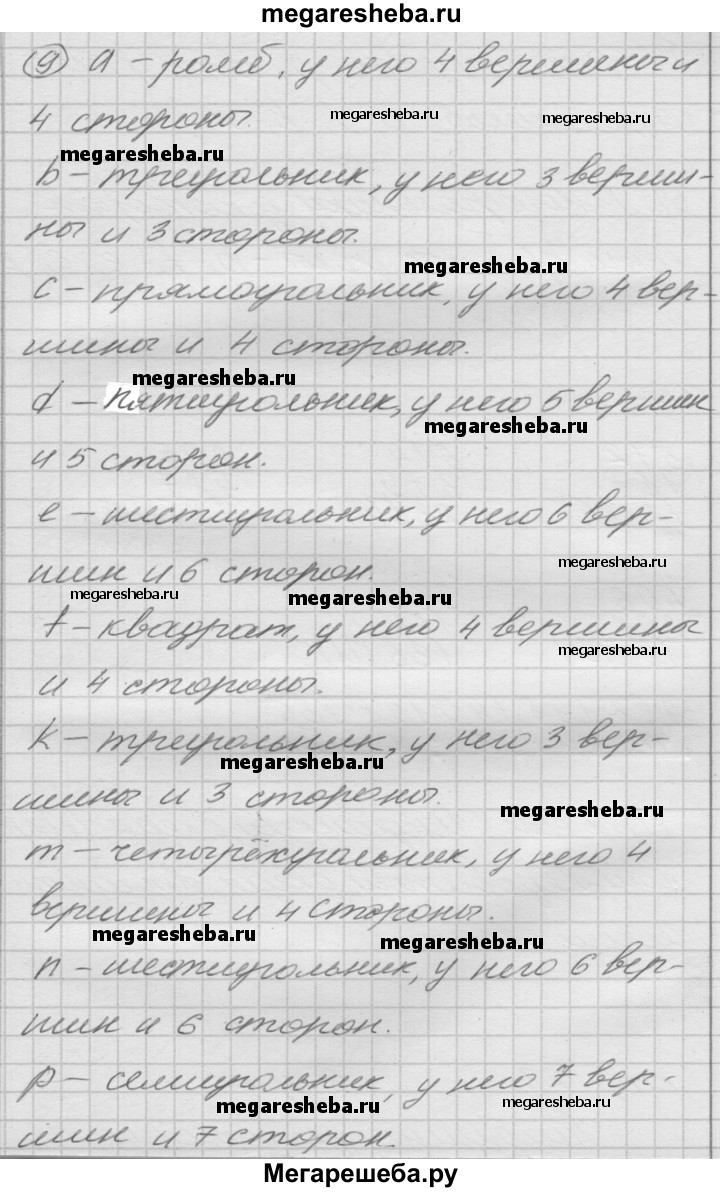 megaresheba.ru
9 a – ромб, у него 4 вершины и
4 стороны.
megaresheba.ru
megaresheba.ru
megaresheba.ru
b – треугольник, у него 3 верши-
ны и 3 стороны.
megaresheba.ru
c – прямоугольник, у него 4 вер-
шины и 4 стороны.
megaresheba.ru
d – пятиугольник, у него 5 вершин
megaresheba.ru
и 5 сторон.
e – шестиугольник, у него 6 вер-
megaresheba.ru
шин и 6 сторон.
megaresheba.ru
megaresheba.ru
f – квадрат, у него 4 вершины
megaresheba.ru
и 4 стороны.
k – треугольник, у него 3 вер-
megaresheba.ru
шины и 3 стороны.
megaresheba.ru
m – четырёхугольник, у него 4
вершины и 4 стороны.
megaresheba.ru
megaresheba.ru
n – шестиугольник, у него 6 вер-
шин и 6 сторон.
p – семиугольник, у него 7 вер-
megaresheba.ru
megaresheba.ru
шин и 7 сторон.
Мегарешеба.ру